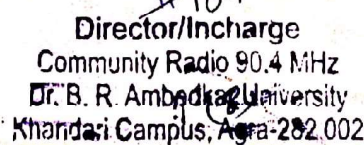 Director/Incharge
Community Radio 90.4 MHz
Dr. B. R. Ambedkar University
Khandari Campus, Agra-282 002